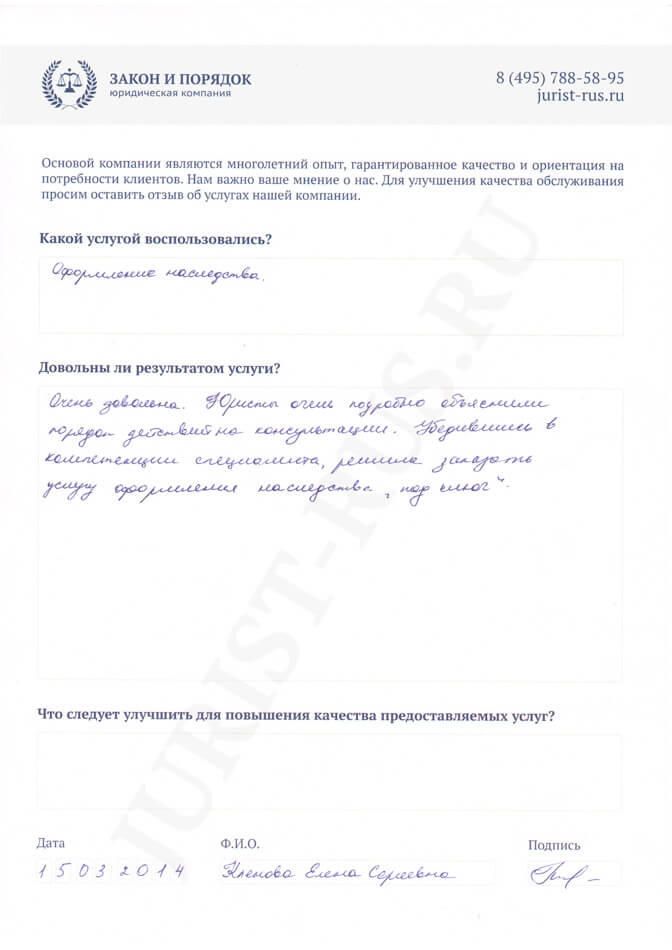 ЗАКОН И ПОРЯДОК
юридическая компания
8 (495) 788-58-95
jurist-rus.ru
Основой компании являются многолетний опыт, гарантированное качество и ориентация на
потребности клиентов. Нам важно ваше мнение о нас. Для улучшения качества обслуживания
просим оставить отзыв об услугах нашей компании.
Какой услугой воспользовались?
Оформление наследства.
Довольны ли результатом услуги?
Очень довольна. Юристы очень подробно объяснили
порядок действий на консультации. Убедившись в
компетенции специалиста, решила заказать
услугу оформления наследства „под ключ“.
JURIST-RUS.RU
Что следует улучшить для повышения качества предоставляемых услуг?
Дата Ф.И.О. Подпись
15 03 2014 Кленова Елена Сергеевна